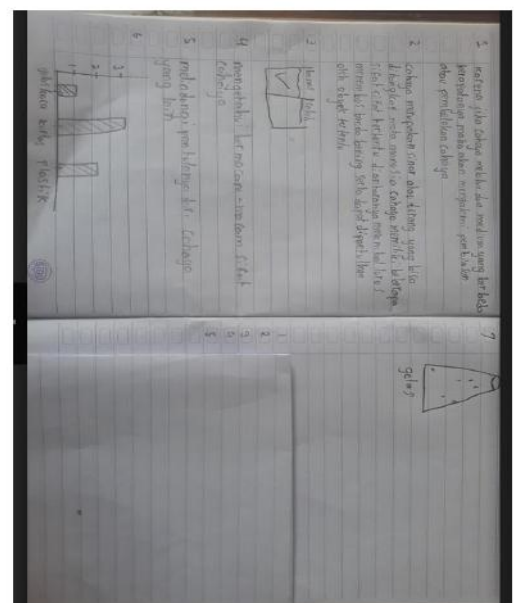 1 karena jika cahaya melalui dua medium yang berbeda
kerapatannya maka akan mengalami pembiasan
atau pembelokan cahaya
2 cahaya merupakan sinar atau terang yang bisa
ditangkap mata manusia cahaya memiliki beberapa
sifat sifat tertentu diantaranya merambat lurus
menembus benda bening serta dapat dipantulkan
oleh objek tertentu
3
4 mengetahui bermacam-macam sifat
cahaya
5 pantulannya dari cahaya
yang lain
6
3
2
1
plastik
7
gelap
1
2
3
4
5